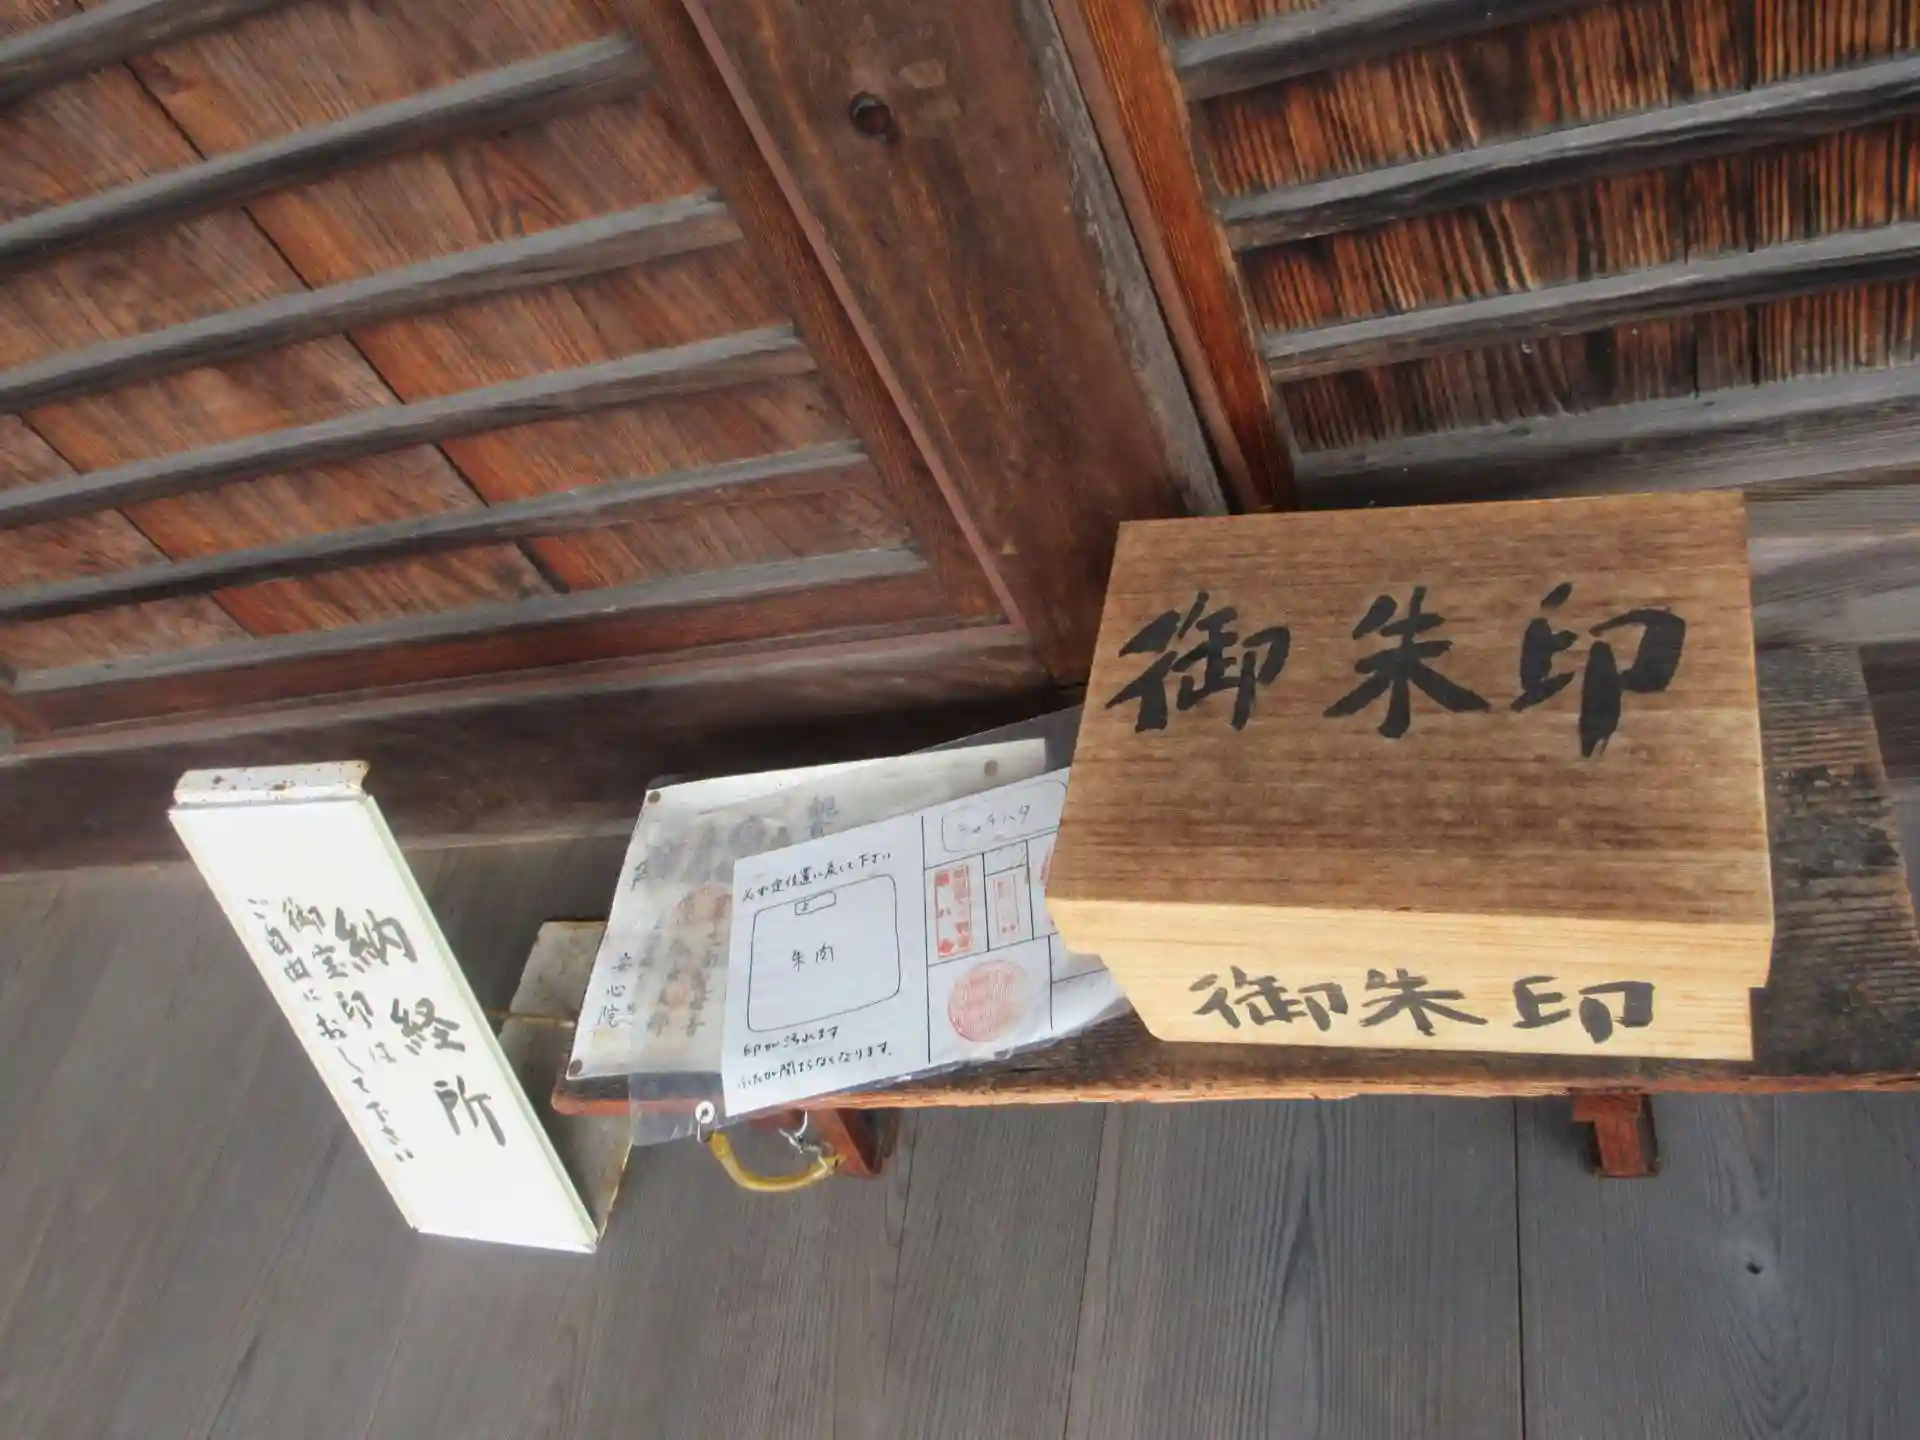 御朱印
御朱印
納経所
御宝印は
ご自由におして下さい
必ず定位置に戻して下さい
上
朱肉
印が汚れます
ふたが閉まらなくなります。
シャチハタ
安心院